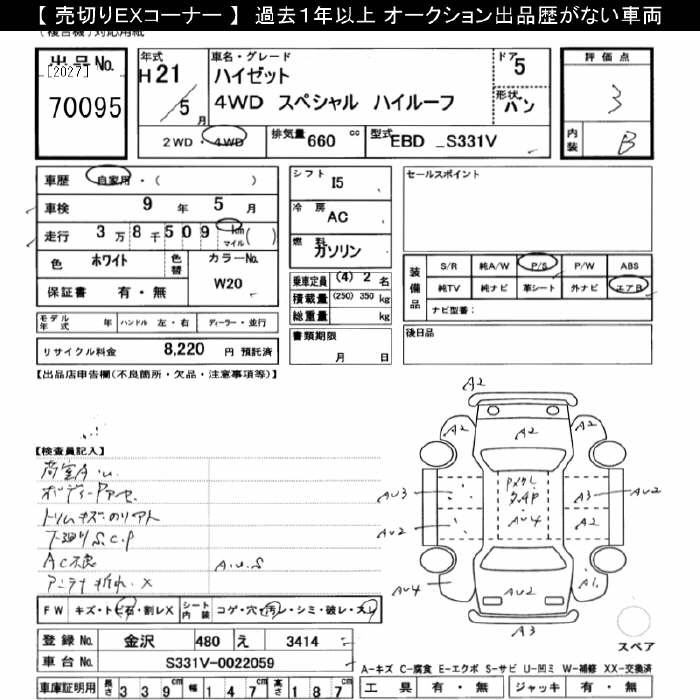 【 売切りEXコーナー 】 過去１年以上 オークション出品歴がない車両
出品No.
[2027]
70095
年式
H21
/5月
車名・グレード
ハイゼット
4WD スペシャル ハイルーフ
ドア
5
形状
バン
2WD ・ 4WD
排気量 660 cc
型式 EBD _S331V
評価点
3
内装
B
車歴 自家用・( )
車検 9 年 5 月
走行 3万8千509 km マイル ( )
色 ホワイト
色替
カラーNo.
W20
保証書 有・無
シフト
I5
冷房
AC
燃料
ガソリン
乗車定員 (4) 2 名
積載量 (250) 350 kg
総重量 kg
書類期限
月 日
セールスポイント
装備品
S/R 純A/W P/S P/W ABS
純TV 純ナビ 革シート 外ナビ エアB
ナビ型番：
後日品
モデル年式 年
ハンドル 左・右
ディーラー・並行
リサイクル料金 8,220 円 預託済
【出品店申告欄(不良箇所・欠品・注意事項等)】
【検査員記入】
ボディーPアセ
トリムキズのリアト
下廻りS.C.P
AC不良
アンテナ折れ X
A.U.S
A2
A2
A2
A2
AU3
AU2
AU4
AU4
A3
AU2
A2
AU2
A1
A3
スペア
FW キズ・トビ石・割レX
シート内装 コゲ・穴・汚レ・シミ・破レ・スレ
登録No. 金沢 480 え 3414
車台No. S331V-0022059
車庫証明用 長さ 339cm 幅 147cm 高さ 187cm
A-キズ C-腐食 E-エクボ S-サビ U-凹ミ W-補修 XX-交換済
工具 有・無 ジャッキ 有・無